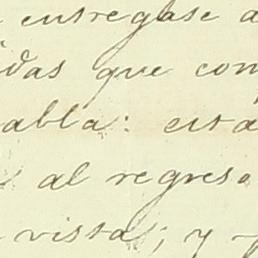 entregase a
idas que con
abla: esta
al regreso
vista; y